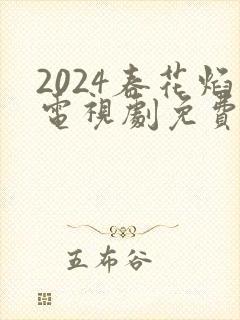 2024春花焰
電視劇免費
五布谷